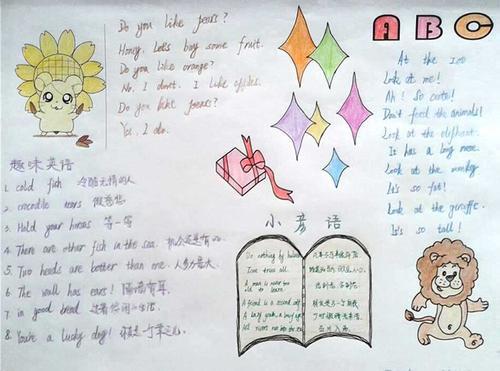 Do you like pears?
Honey, Let's buy some fruit.
Do you like orange?
No, I don't. I like apples.
Do you like pears?
Yes, I do.
ABC
At the zoo
Look at me!
Ah! So cute!
Don't feed the animals!
Look at the elephant.
It has a long nose.
Look at the monkey
It's so fat!
Look at the giraffe.
It's so tall!
趣味英语
1. cold fish 冷酷无情的人
2. crocodile tears 假慈悲
3. Hold your horses 等一等
4. There are other fish in the sea. 机会还是有的.
5. Two heads are better than one. 人多力量大.
6. The wall has ears! 隔墙有耳.
7. in good bread 过着悠闲的生活
8. You're a lucky dog! 你是个幸运儿.
小彦语
Do nothing by halves
Love trust all
A man is never too
old to learn
A friend is a second self